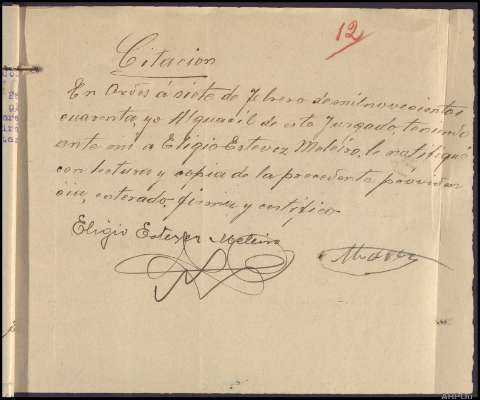 12
Citacion
En Ordes á siete de febrero de mil novecientos
cuarenta, yo Alguacil de este Juzgado, teniendo
ante mi a Eligio Estevez Meleiro, le notifiqué
con lectura y copia de la precedente providen
cia, enterado firma y certifico
Eligio Estevez Meleiro
AHPOu